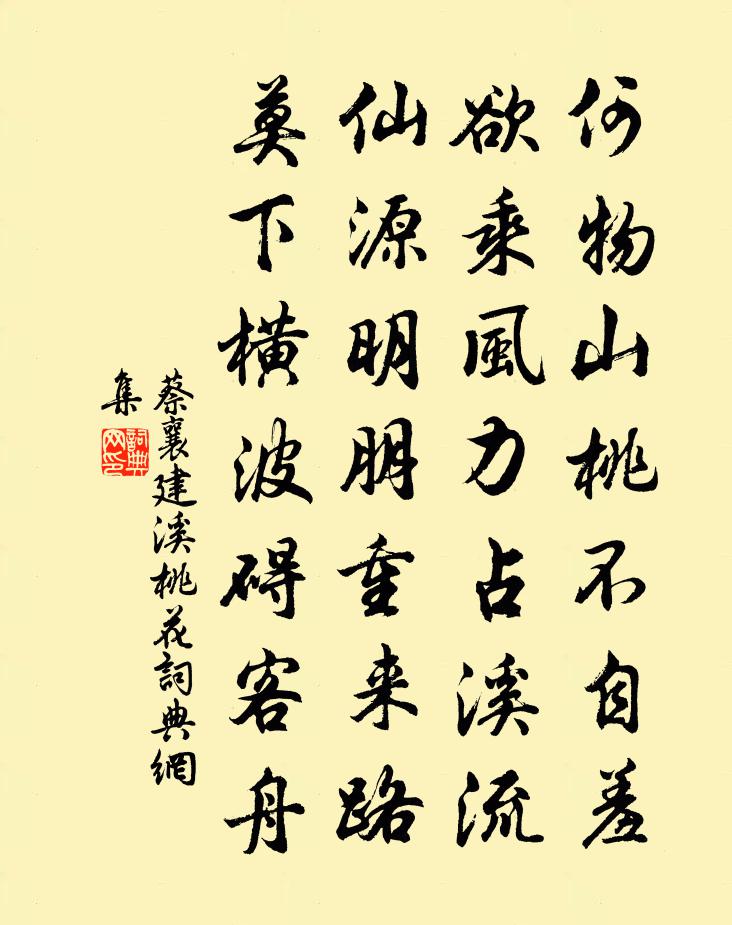 何物山桃不自羞
欲乘風力占溪流
仙源明朋重来路
莫下横波碍客舟
蔡襄建溪桃花詞典網
集
詞典
网印